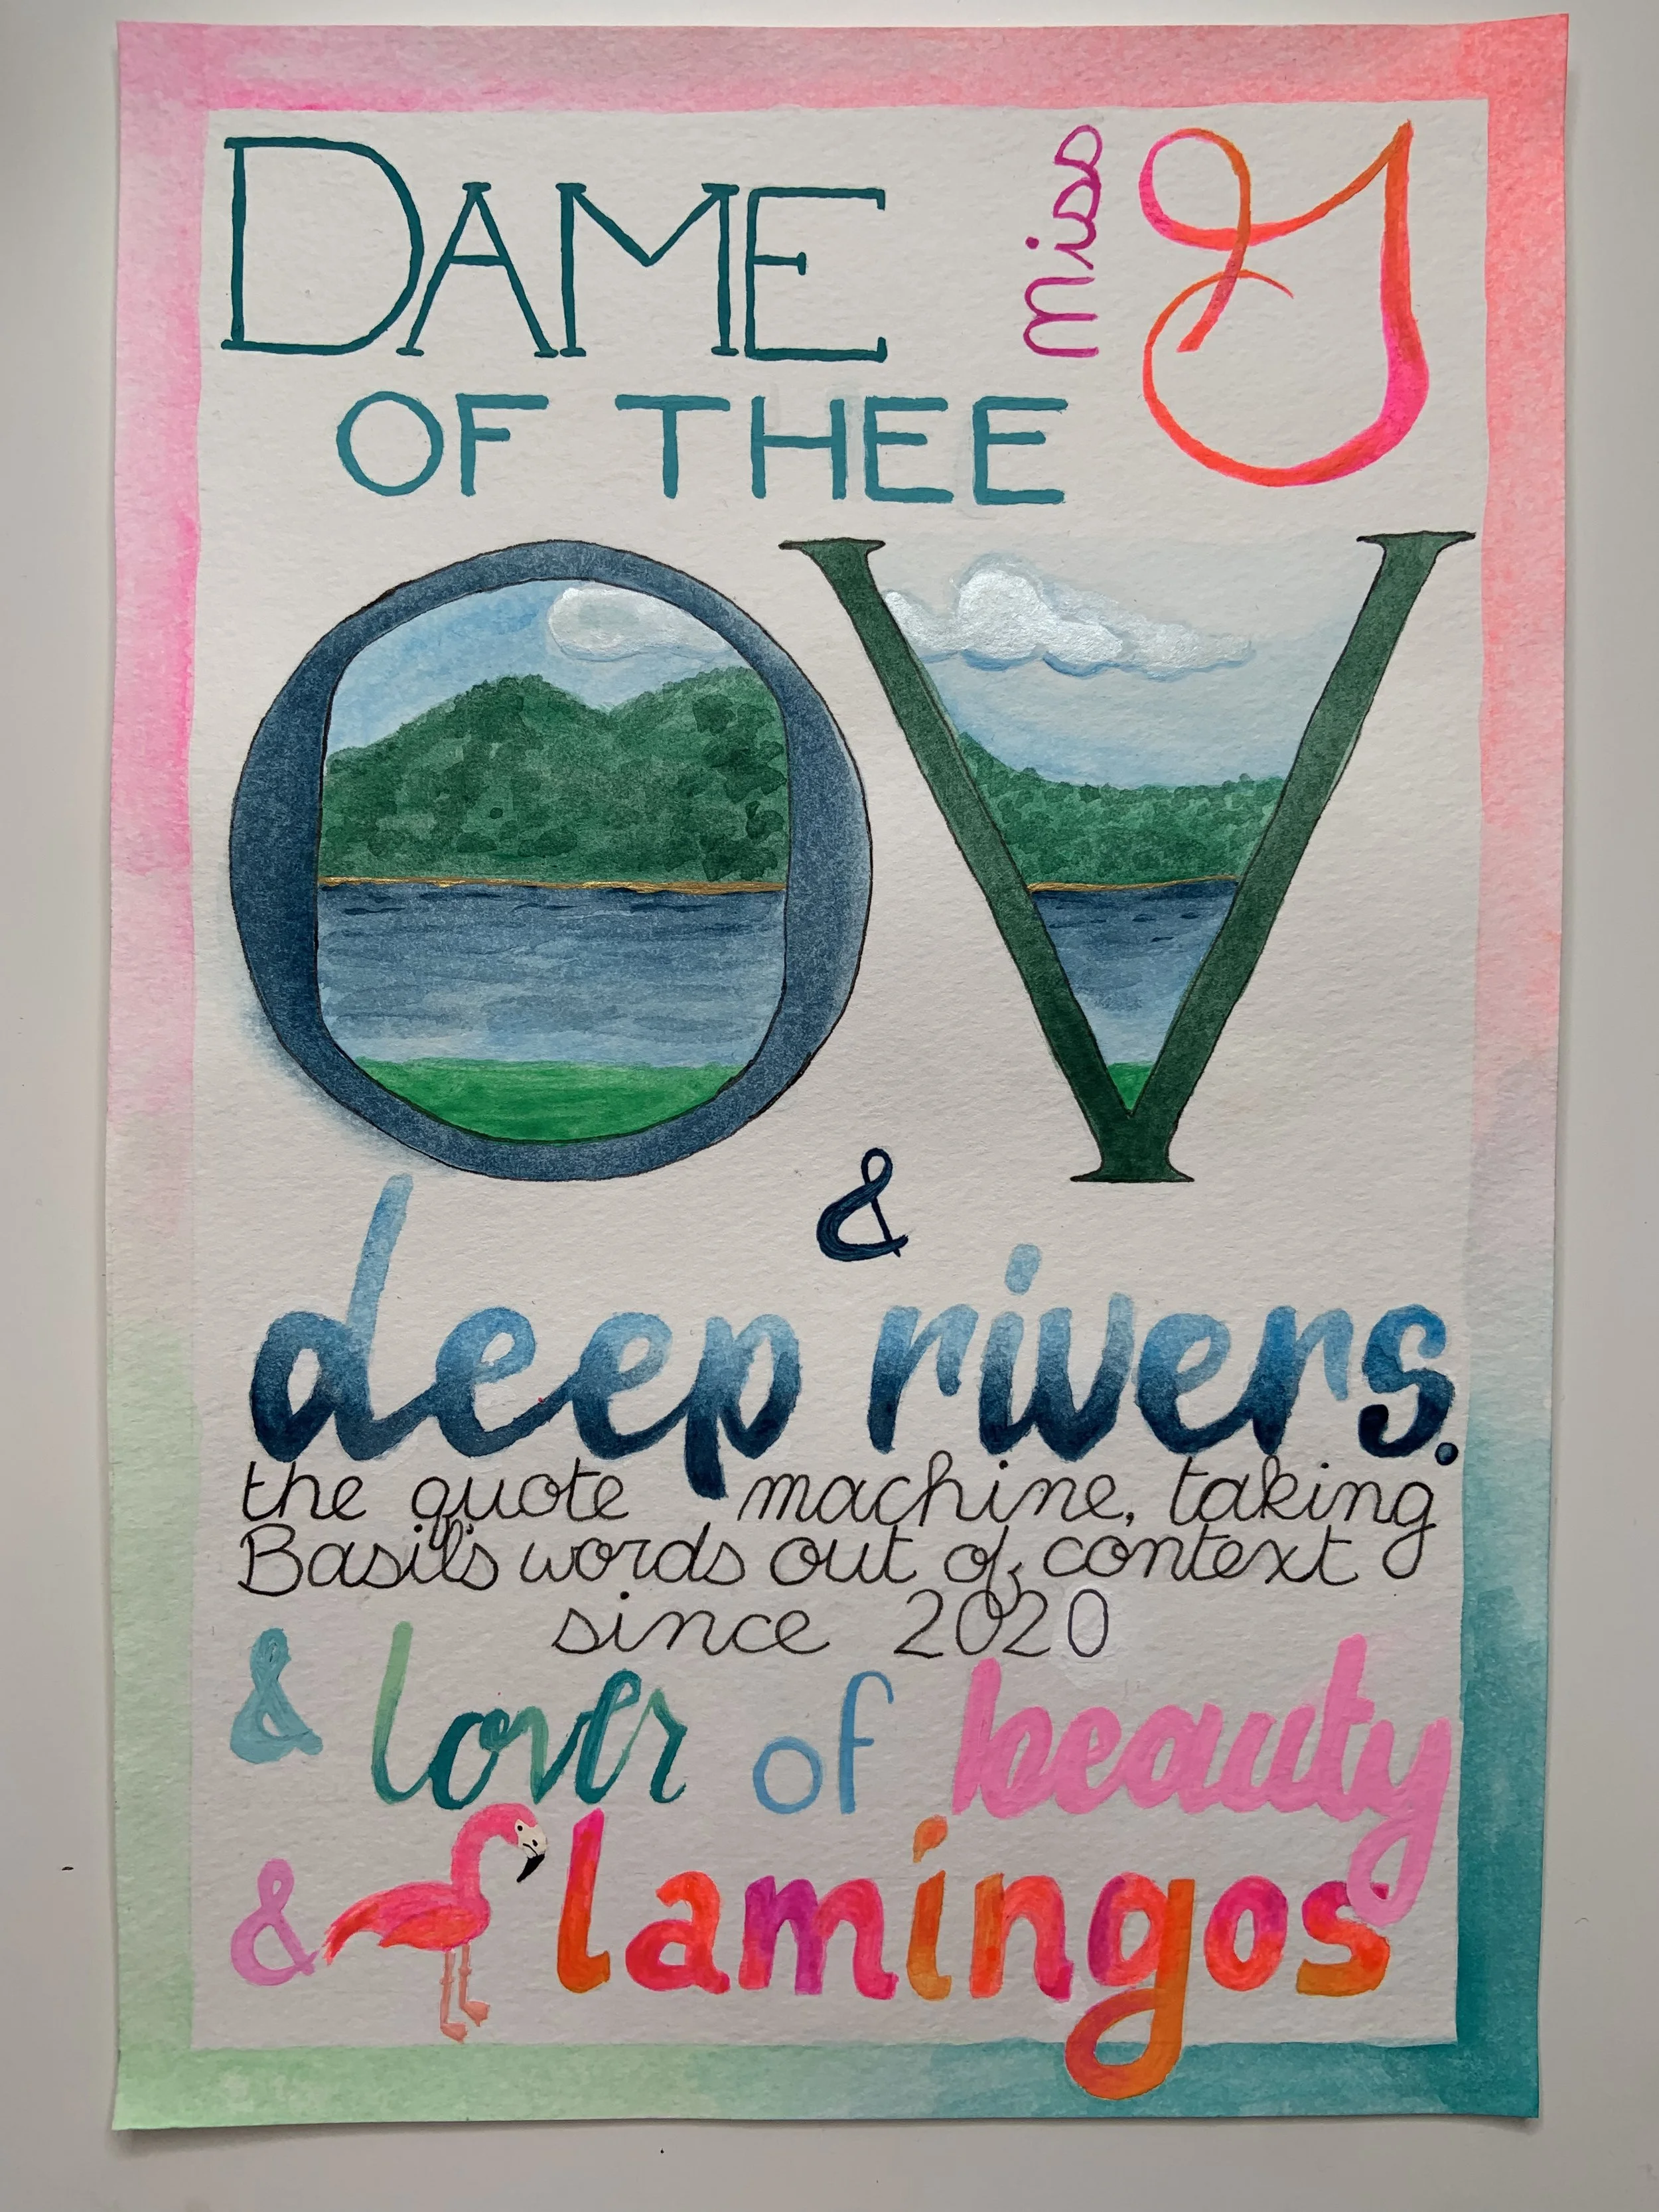 DAME
miss G
OF THEE
OV
&
deep rivers.
the quote machine, taking
Basil's words out of context
since 2020
& lover of beauty
& flamingos